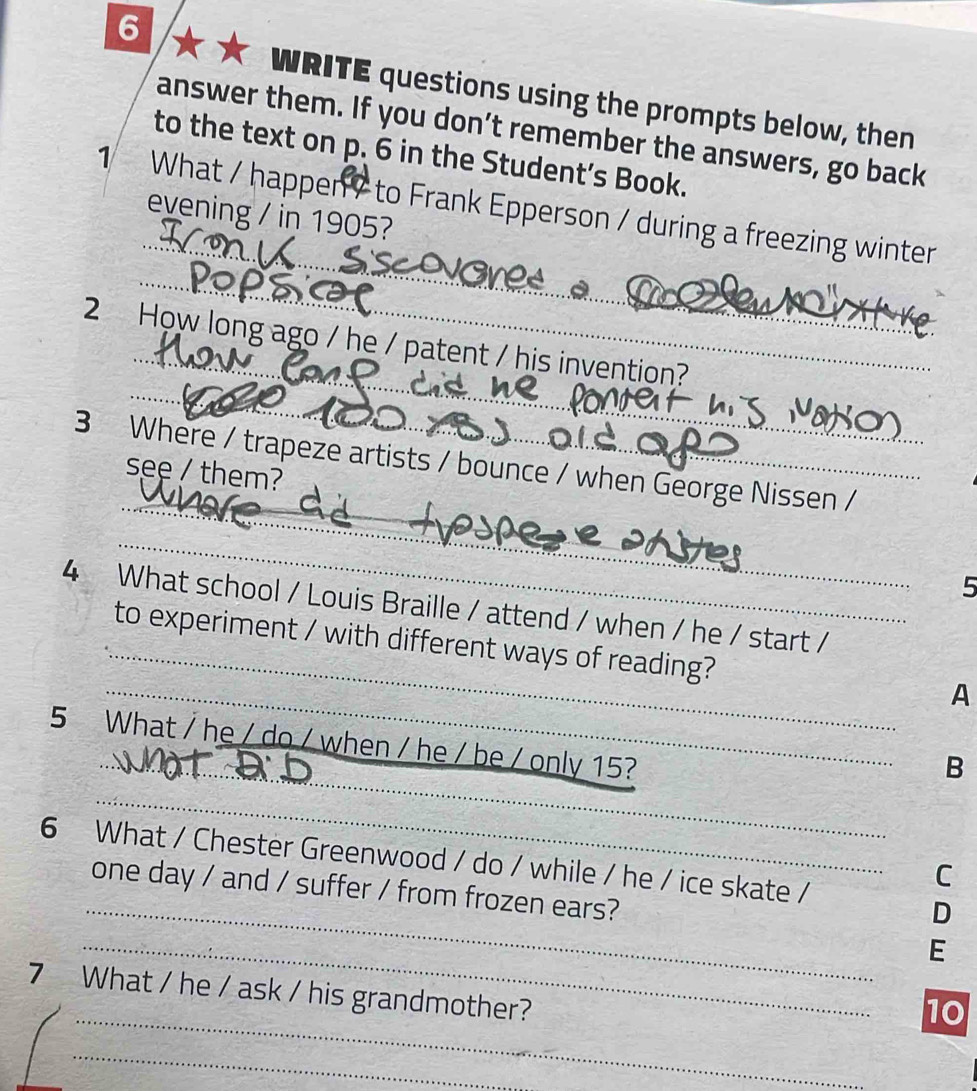 6
WRITE questions using the prompts below, then
answer them. If you don't remember the answers, go back
to the text on p. 6 in the Student's Book.
1 What / happen / to Frank Epperson / during a freezing winter
ed
evening / in 1905?
popsicoe
2 How long ago / he / patent / his invention?
How long did he his
100 old ago
3 Where / trapeze artists / bounce / when George Nissen /
see / them?
Where did
4 What school / Louis Braille / attend / when / he / start /
to experiment / with different ways of reading?
5 What / he / do / when / he / be / only 15?
what DiD
6 What / Chester Greenwood / do / while / he / ice skate /
one day / and / suffer / from frozen ears?
7 What / he / ask / his grandmother?
5
A
B
C
D
E
10